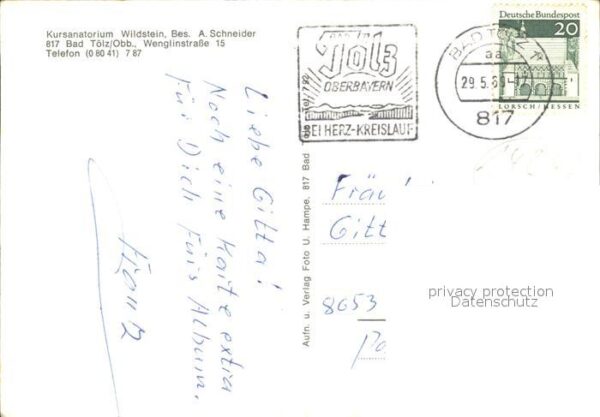 Kursanatorium Wildstein, Bes. A. Schneider
817 Bad Tölz/Obb., Wenglinstraße 15
Telefon (0 80 41) 7 87
Liebe Gitta!
Noch eine Karte extra
für Dich fürs Album.
Franz
Aufn. u. Verlag Foto U. Hampe, 817 Bad
Tölz
OBERBAYERN
BEI HERZ-KREISLAUF
BAD TÖLZ 1
aa
29.5.6
817
Deutsche Bundespost
20
LORSCH/HESSEN
Fräu
Gitt
8053
privacy protection
Datenschutz